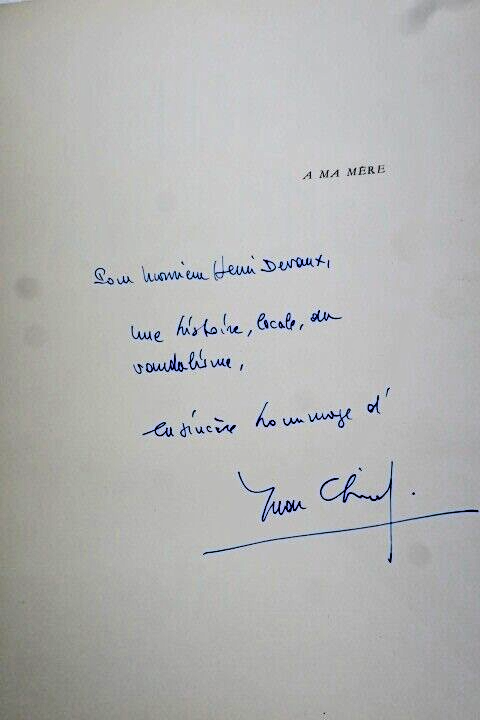 A MA MÈRE
Pour Monsieur Henri Devaux,
une histoire, locale, du
vandalisme,
en sincère hommage d'
Yvan Christ.